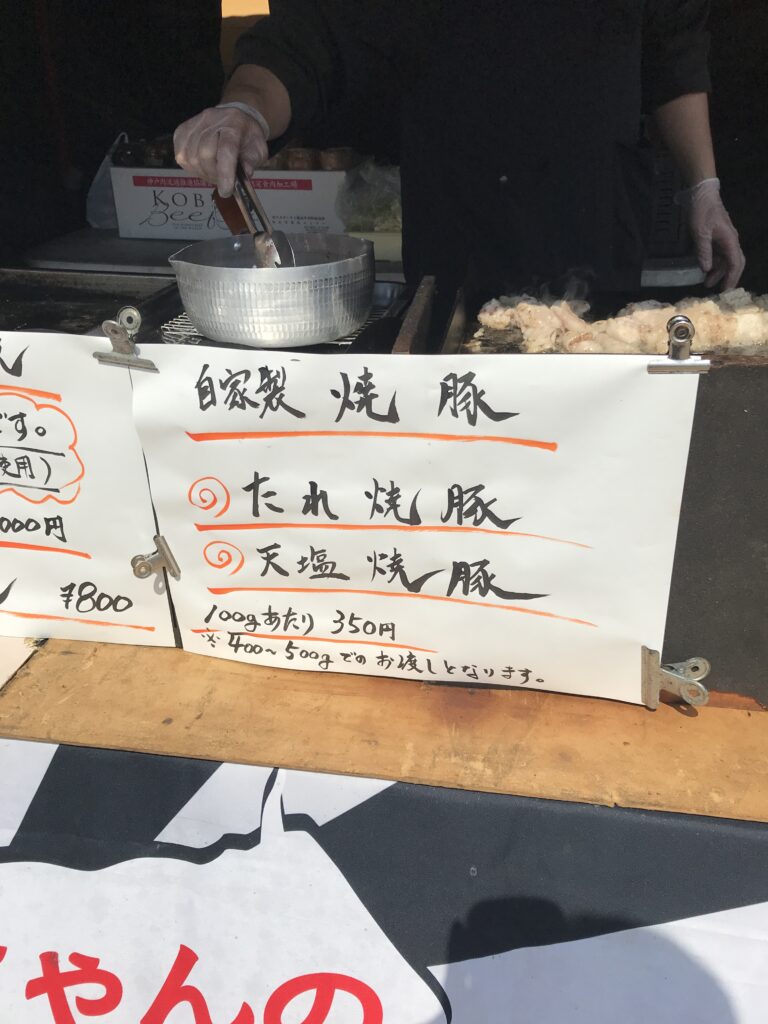 KOBE
Beef
です。
使用)
000円
¥800
自家製 焼豚
たれ焼豚
天塩焼豚
100gあたり 350円
※400~500gでのお渡しとなります。
ちゃんの